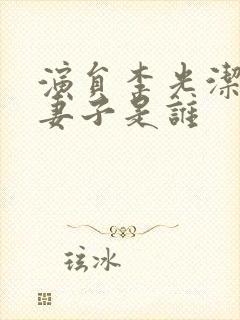 演員李光潔
妻子是誰
玹冰